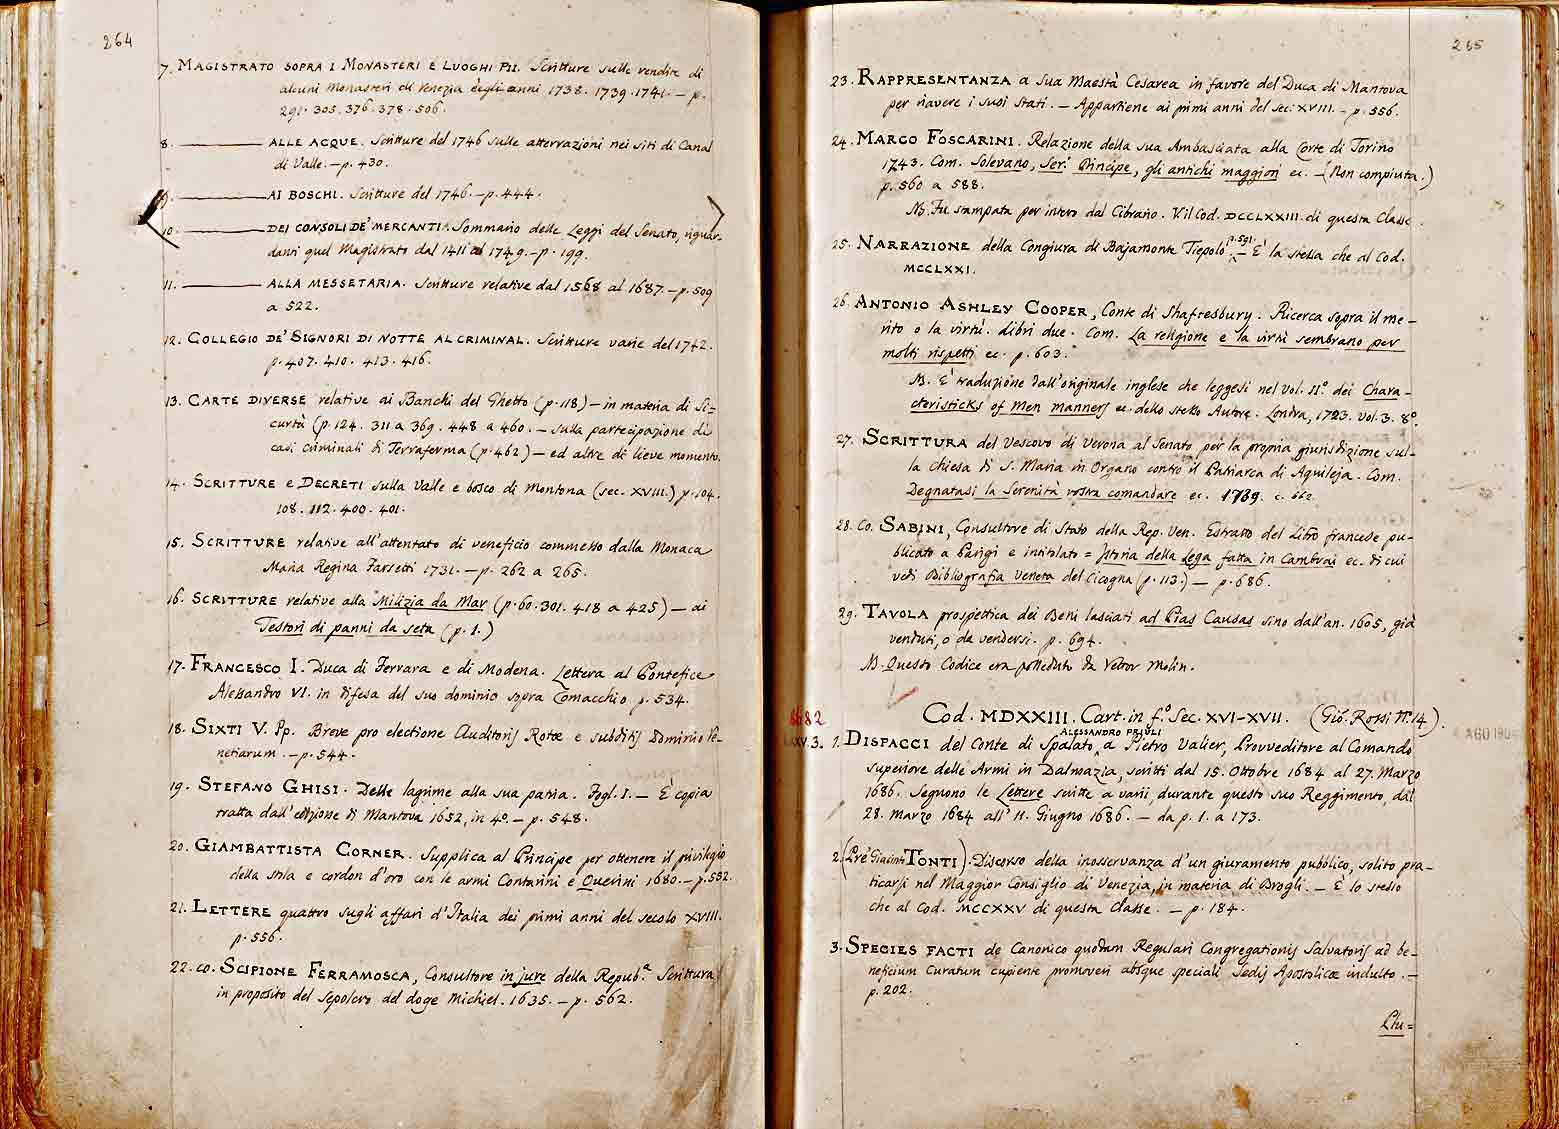 264
7. MAGISTRATO SOPRA I MONASTERI E LUOGHI PII. Scritture sulle vendite di
alcuni Monasteri di Venezia degli anni 1738. 1739. 1741. — p.
291. 305. 376. 378. 506.
8. ——— ALLE ACQUE. Scritture del 1746 sulle atterrazioni nei siti di Canal
di Valle. — p. 430.
9. ——— AI BOSCHI. Scritture del 1746. — p. 444.
10. ——— DEI CONSOLI DE' MERCANTI. Sommario delle Leggi del Senato, riguar-
danti quel Magistrato dal 1411 al 1749. — p. 199.
11. ——— ALLA MESSETARIA. Scritture relative dal 1568 al 1687. — p. 509
a 522.
12. COLLEGIO DE' SIGNORI DI NOTTE AL CRIMINAL. Scritture varie del 1742.
p. 407. 410. 413. 416.
13. CARTE DIVERSE relative ai Banchi del Ghetto (p. 118) — in materia di Si=
curtà (p. 124. 311 a 369. 448 a 460. — sulla partecipazione di
casi criminali di Terraferma (p. 462) — ed altre di lieve momento.
14. SCRITTURE e DECRETI sulla Valle e bosco di Montona (sec. XVIII.) p. 104.
108. 112. 400. 401.
15. SCRITTURE relative all'attentato di veneficio commesso dalla Monaca
Maria Regina Farsetti 1731. — p. 262 a 265.
16. SCRITTURE relative alla Milizia da Mar (p. 60. 301. 418 a 425) — ai
Testori di panni da seta (p. 1.)
17. FRANCESCO I. Duca di Ferrara e di Modena. Lettera al Pontefice
Alessandro VI. in difesa del suo dominio sopra Comacchio p. 534.
18. SIXTI V. Pp. Breve pro electione Auditoris Rotæ e subditis Dominio Ve-
netiarum. — p. 544.
19. STEFANO GHISI. Delle lagrime alla sua patria. Fogl. I. — È copia
tratta dall'edizione di Mantova 1652, in 4º. — p. 548.
20. GIAMBATTISTA CORNER. Supplica al Principe per ottenere il privilegio
della stola e cordon d'oro con le armi Contarini e Querini 1680. — p. 552.
21. LETTERE quattro sugli affari d'Italia dei primi anni del secolo XVIII.
p. 556.
22. Co. SCIPIONE FERRAMOSCA, Consultore in jure della Repub.ª Scrittura
in proposito del sepolcro del doge Michiel. 1635. — p. 562.
265
23. RAPPRESENTANZA a Sua Maestà Cesarea in favore del Duca di Mantova
per riavere i suoi stati. — Appartiene ai primi anni del Sec: XVIII. — p. 556.
24. MARCO FOSCARINI. Relazione della sua Ambasciata alla Corte di Torino
1743. Com. Solevano, Ser.º Principe, gli antichi maggiori ec. — (Non compiuta.)
p. 560 a 588.
NB. Fu stampata per intero dal Cibrario. V. il Cod. DCCLXXIII. di questa Classe.
25. NARRAZIONE della Congiura di Bajamonte Tiepolo p. 591. — È la stessa che al Cod.
MCCLXXI.
26. ANTONIO ASHLEY COOPER, Conte di Shaftesbury. Ricerca sopra il me-
rito o la virtù. Libri due. Com. La religione e la virtù sembrano per
molti rispetti ec. p. 603.
NB. È traduzione dall'originale inglese che leggesi nel Vol. IIº dei Chara-
cteristicks of Men manners ec. dello stesso Autore. Londra, 1723. Vol. 3. 8º.
27. SCRITTURA del Vescovo di Verona al Senato per la propria giurisdizione sul-
la chiesa di S. Maria in Organo contro il Patriarca di Aquileja. Com.
Degnatasi la Serenità vostra comandare ec. 1739. c. 662.
28. Co. SABINI, Consultore di Stato della Rep. Ven. Estratto del Libro francese pu-
blicato a Parigi e intitolato = Istoria della Lega fatta in Cambrai ec. di cui
vedi Bibliografia Veneta del Cicogna (p. 113.) — p. 686.
29. TAVOLA prospettica dei Beni lasciati ad Pias Causas sino dall'an. 1605, già
venduti, o da vendersi. p. 694.
NB. Questo Codice era posseduto da Vettor Molin.
8682
Cod. MDXXIII. Cart. in f.º Sec. XVI-XVII. (Gio. Rossi Nº. 14).
AGO 190
ALESSANDRO PRIULI
1. DISPACCI del Conte di Spalato a Pietro Valier, Provveditore al Comando
superiore delle Armi in Dalmazia, scritti dal 15. Ottobre 1684 al 27. Marzo
1686. Seguono le Lettere scritte a varii, durante questo suo Reggimento, dal
28. Marzo 1684 all' 11. Giugno 1686. — da p. 1. a 173.
2. (Prè Giacinto TONTI). Discorso della inosservanza d'un giuramento pubblico, solito pra-
ticarsi nel Maggior Consiglio di Venezia, in materia di Brogli. — È lo stesso
che al Cod. MCCXXV di questa Classe. — p. 184.
3. SPECIES FACTI de Canonico quodam Regulari Congregationis Salvatoris ad be-
neficium Curatum cupiente promoveri absque speciali Sedis Apostolicæ indulto. —
p. 202.
Plu=